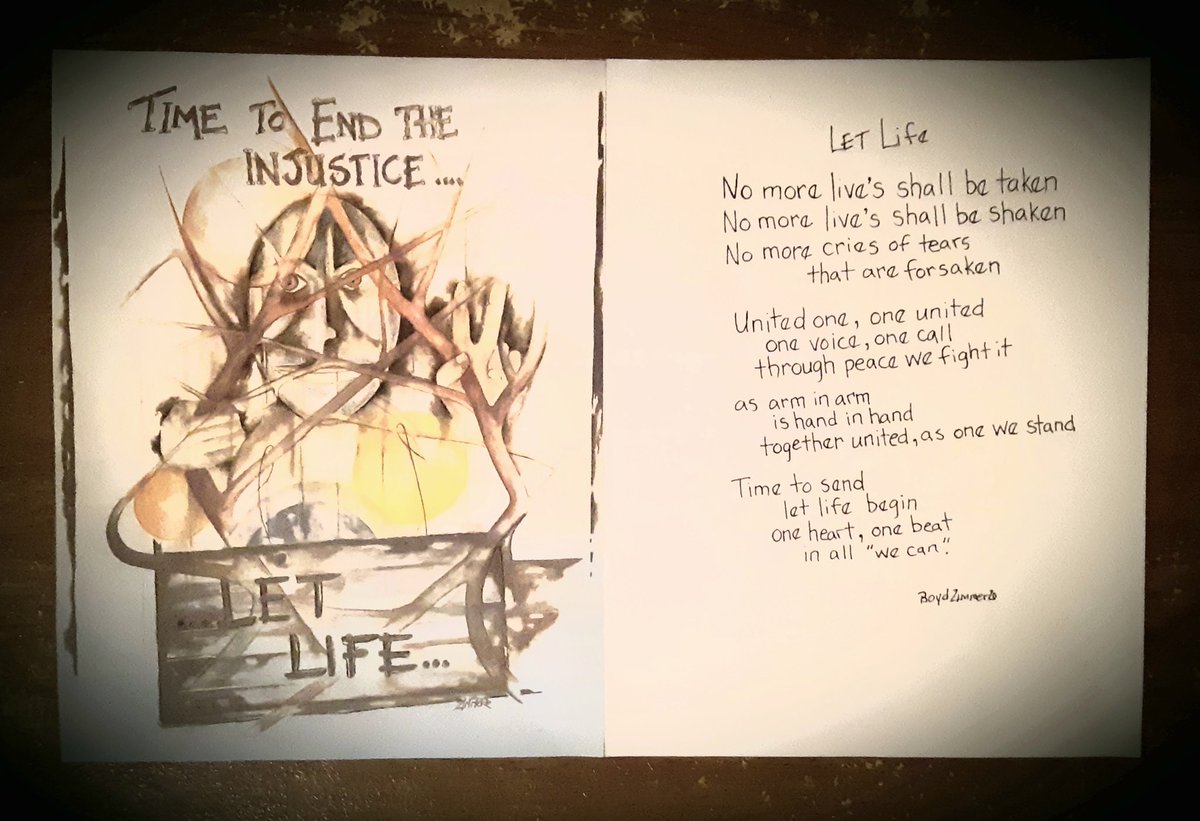 TIME TO END THE
INJUSTICE....
....LET
LIFE...
LET Life
No more live's shall be taken
No more live's shall be shaken
No more cries of tears
that are forsaken
United one, one united
one voice, one call
through peace we fight it
as arm in arm
is hand in hand
together united, as one we stand
Time to send
let life begin
one heart, one beat
in all "we can".